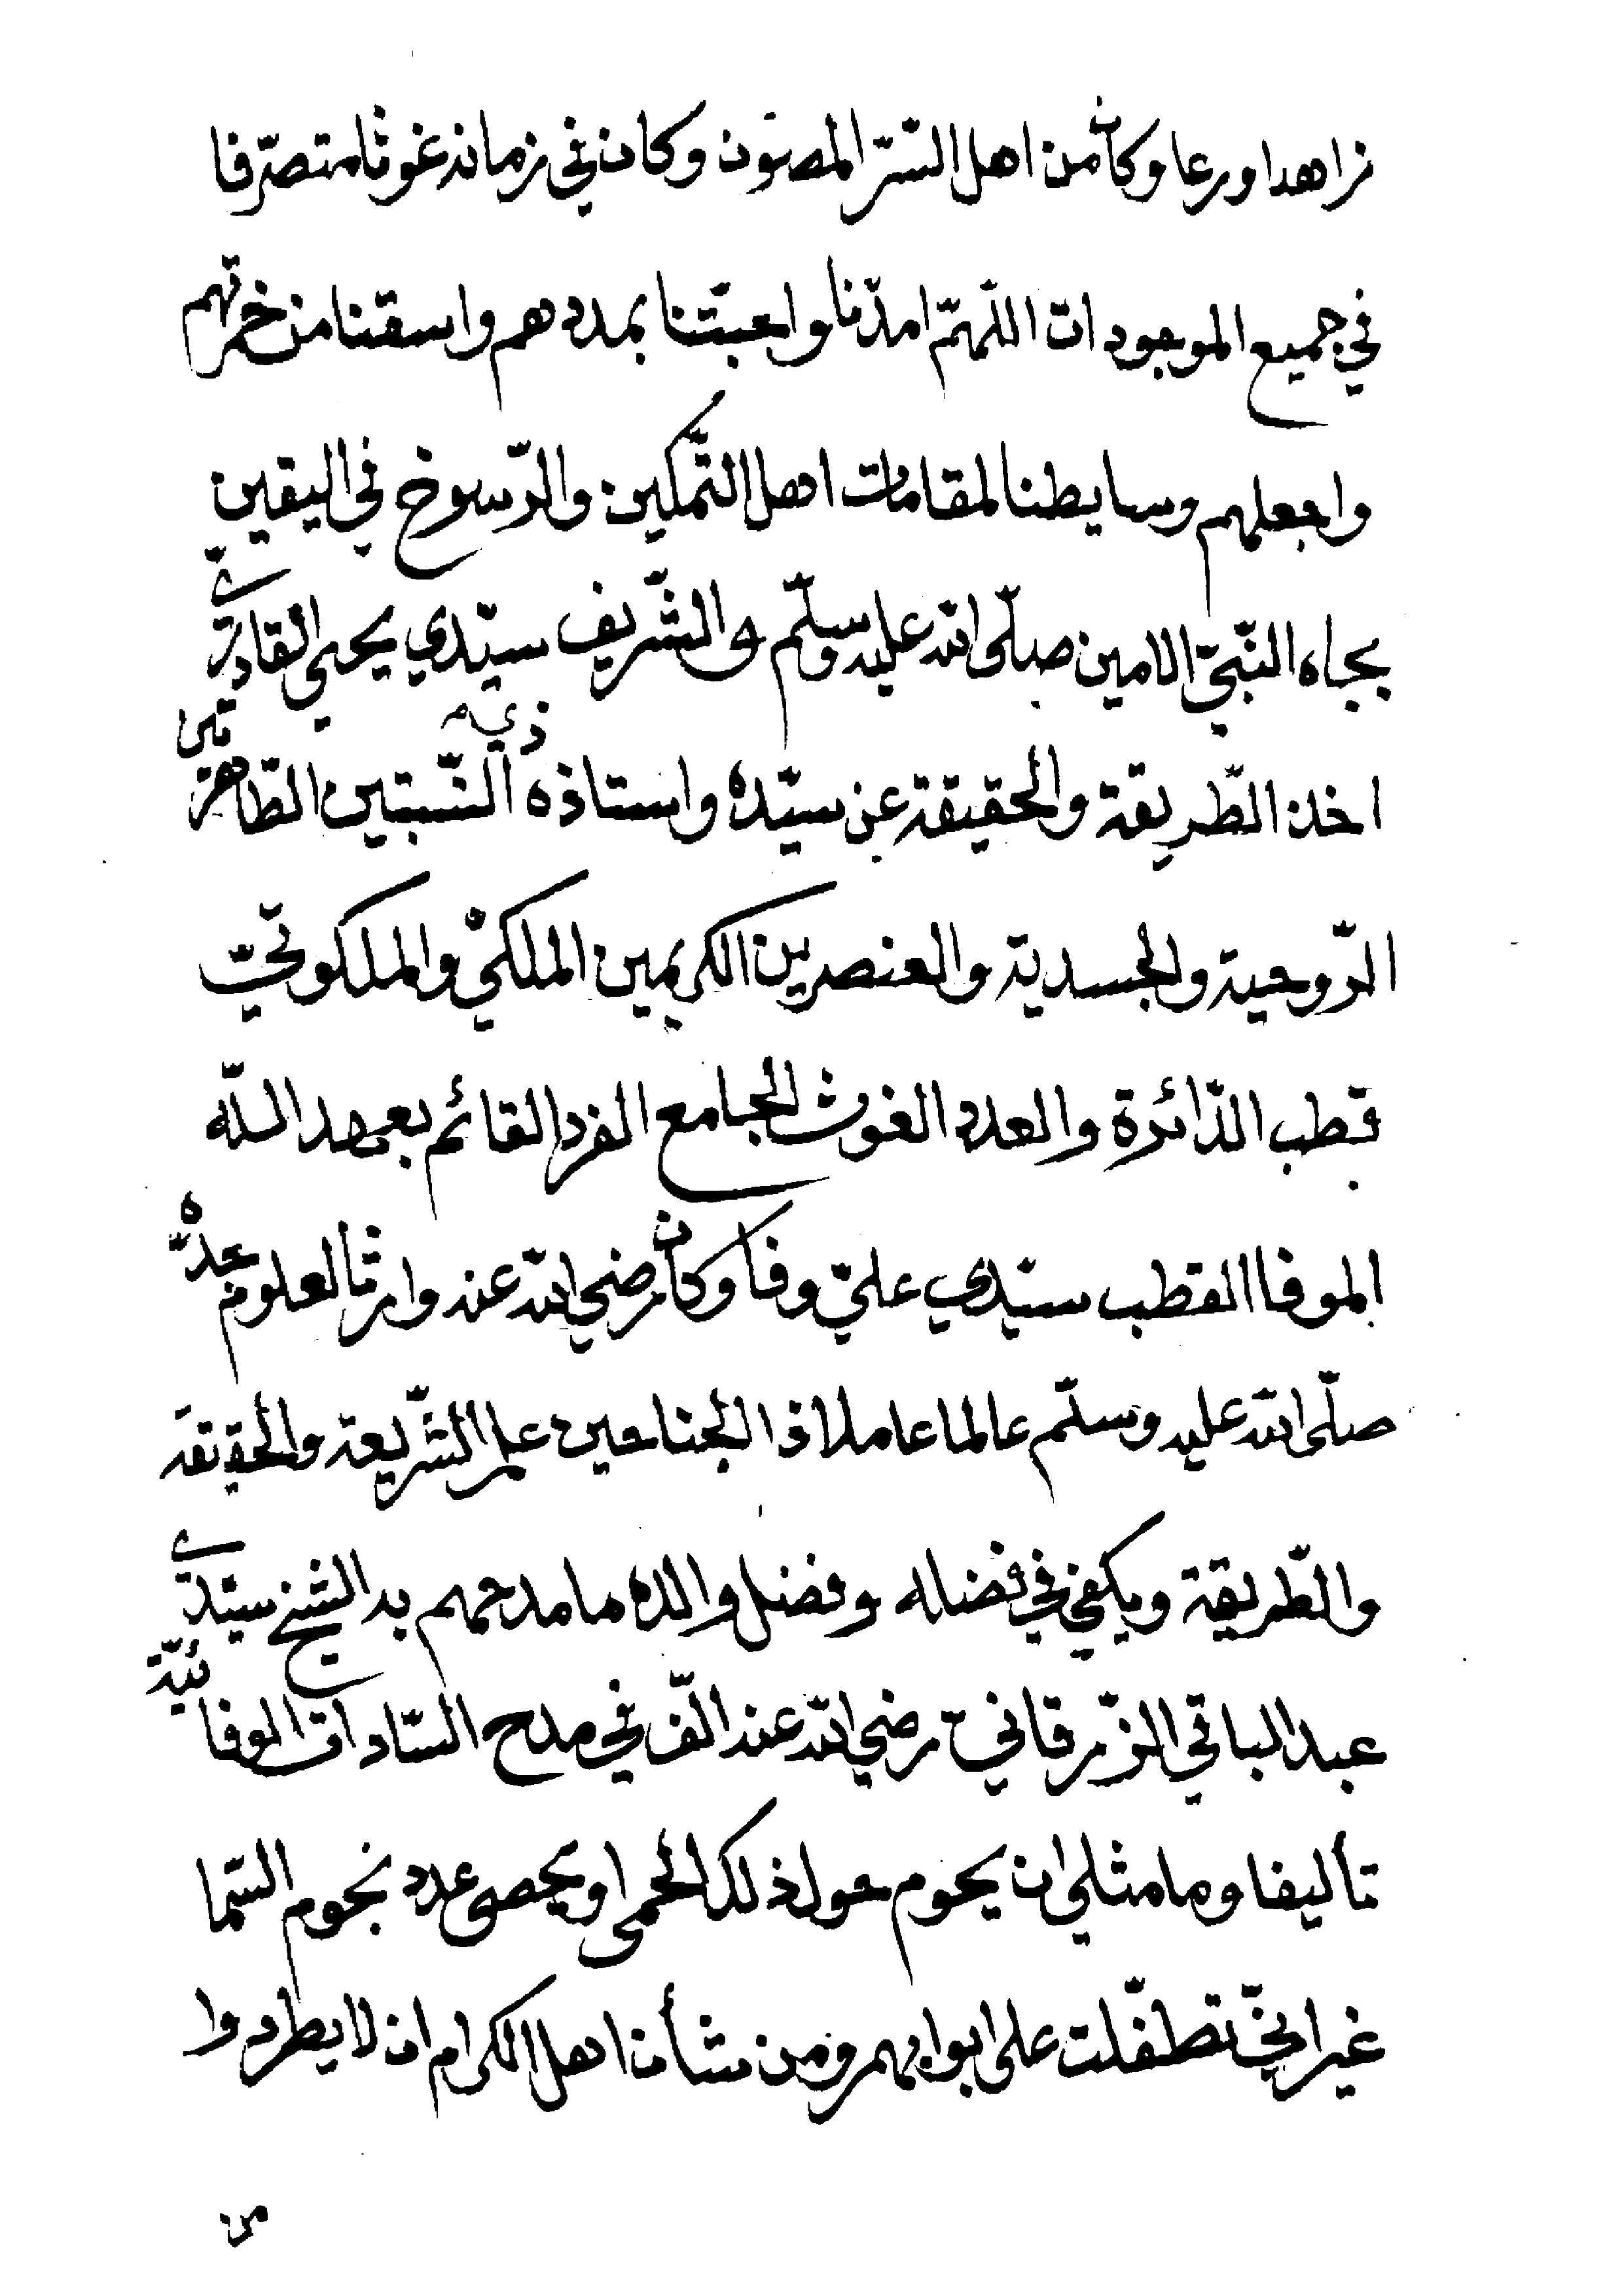 زاهدا ورعا وكان من اهل السّرّ المصئون وكان في زمانه غوثا متصرّفا
في جميع الموجودات اللّهمّ امدّنا واحبّتنا بمددهم واسقنا من خمرتهم
واجعلهم وسايطنا لمقامات اهل التّمكين والرّسوخ في اليقين
بجاه النّبيّ الامين صلّى الله عليه وسلّم والشّريف سيّدي يحيى القادريّ
اخذ الطّريقة والحقيقة عن سيّده واستاذه ذي النّسبتين الطّاهرتين
الرّوحية والجسدية والعنصرين الكريمين الملكيْ والملكوتيّ
قطب الدّائرة والعدد الغوث الجامع الفرد القائم بعهد اللّه
الموفا القطب سيّدي عليّ وفا وكان رضي الله عنه وارثا لعلوم جدّه
صلّى الله عليه وسلّم عالما عاملا ذا الجناحين علم الشّريعة والحقيقة
والطّريقة ويكفي في فضله وفضل والده ما مدحهم به الشيخ سيّدي
عبد الباقي الزّرقانيّ رضي الله عنه الّف في مدح السّادات الوفائيّة
تأليفا وما مثلي ان يحوم حول ذلك الحمى او يحصى عدد نجوم السّما
غير انيّ تطفّلت على ابوابهم ومن شأن اهل الكرام ان لا يطردوا
من